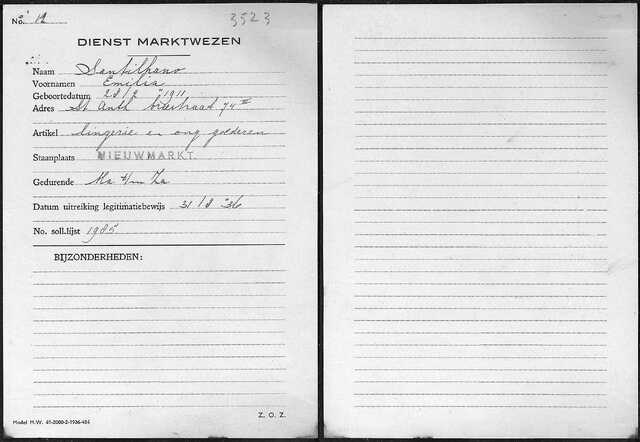 No. 12
3523
DIENST MARKTWEZEN
Naam Santilhano
Voornamen Emilia
Geboortedatum 28/2 1911
Adres St Anth. breestraat 74 II
Artikel lingerie en ong. goederen
Staanplaats NIEUWMARKT.
Gedurende Ma t/m Za
Datum uitreiking legitimatiebewijs 31/8 '36
No. soll.lijst 1985
BIJZONDERHEDEN:
Model M.W. 61-2000-2-1936-486
Z. O. Z.